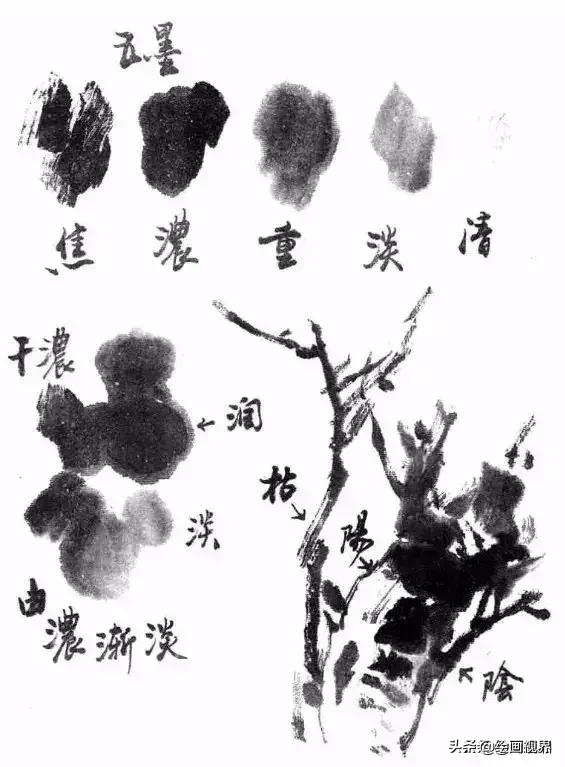 五墨
焦 濃 重 淡 清
干濃
润
淡
由濃漸淡
枯
陽
陰
头条@绘画视界